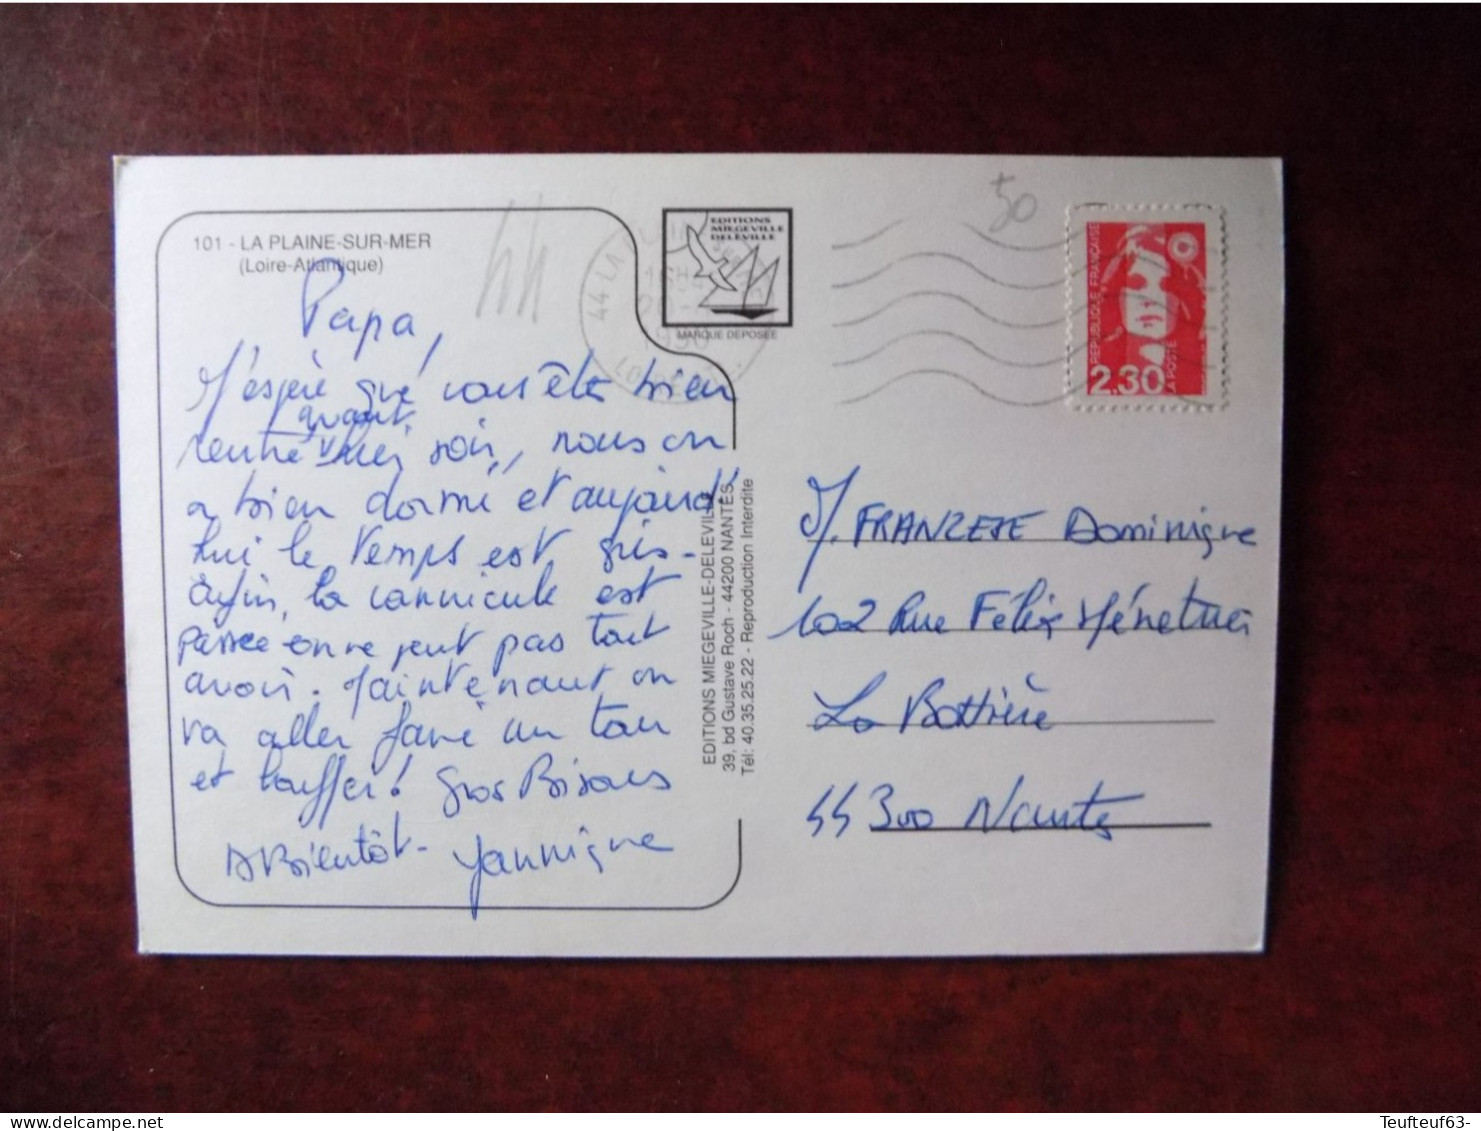 101 - LA PLAINE-SUR-MER
(Loire-Atlantique)
Papa,
J'espère que vous êtes bien
avant
rentré hier soir, nous on
a bien dormi et aujourd'
hui le temps est gris -
enfin, la cannicule est
passée on ne peut pas tout
avoir. Maintenant on
va aller faire un tour
et bouffer! Gros Bisous
A Bientôt - Yannigne
EDITIONS
MIEGEVILLE
DELEVILLE
MARQUE DEPOSEE
EDITIONS MIEGEVILLE-DELEVILLE
39, bd Gustave Roch - 44200 NANTES
Tél: 40.35.25.22 - Reproduction Interdite
50
REPUBLIQUE FRANÇAISE
2,30
LA POSTE
M. FRANZESE Dominique
102 Rue Félix Ménétrier
La Bottière
44 300 Nantes
Teufteuf63-